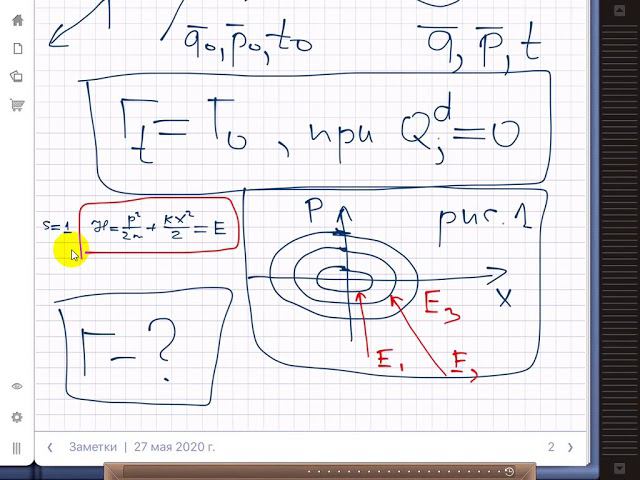 q̄₀, p̄₀, t₀
q̄, p̄, t
Γt = Γ₀, при Qjᵈ = 0
s=1 ℋ = p²/2m + kx²/2 = E
P рис. 1
x
E₃
E₁ E₂
Γ - ?
Заметки | 27 мая 2020 г. 2